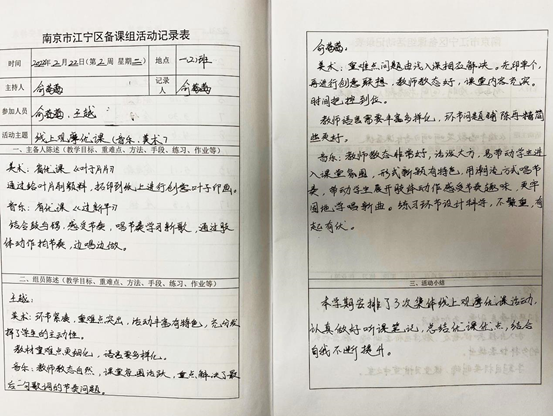 南京市江宁区备课组活动记录表
时间 2022年2月22日(第2周 星期二) 地点 一(2)班
主持人 俞莹莹 记录人 俞莹莹
参加人员 俞莹莹、王越
活动主题 线上观摩优课(音乐、美术)
一、主备人陈述(教学目标、重难点、方法、手段、练习、作业等)
美术:省优课《叶子片片》
通过给叶片刷颜料,拓印到纸上进行创意叶子印画。
音乐:省优课《过新年》
结合鼓与锣,感受节奏,唱节奏学习新歌,通过肢
体动作拍节奏,边唱边做。
二、组员陈述(教学目标、重难点、方法、手段、练习、作业等)
王越:
美术:环节紧凑,重难点突出,活动丰富有特色,充分发
挥了学生的主动性。
教材重难点更细化,语言更多样化。
音乐:教师教态自然,课堂氛围活跃,重点解决了最
后一句歌词的节奏问题。
俞莹莹:
美术:重难点问题由浅入深相应解决。先印单个,
再进行创意联想,教师教态好,课堂内容充实。
时间把控到位。
教师语言需要丰富多样化,环节问题铺陈再精简
些更好。
音乐:教师教态非常好,活泼大方,易带动学生进
入课堂氛围,形式新颖有特色,用朗读方式唱节
奏,带动学生展开肢体动作感受节奏趣味,
学唱新曲。练习环节设计科学,不繁重,有
起有伏。
三、活动小结
本学期安排了3次集体线上观摩优课活动,
认真做好听课笔记,总结优课优点,结合
自我不断提升。